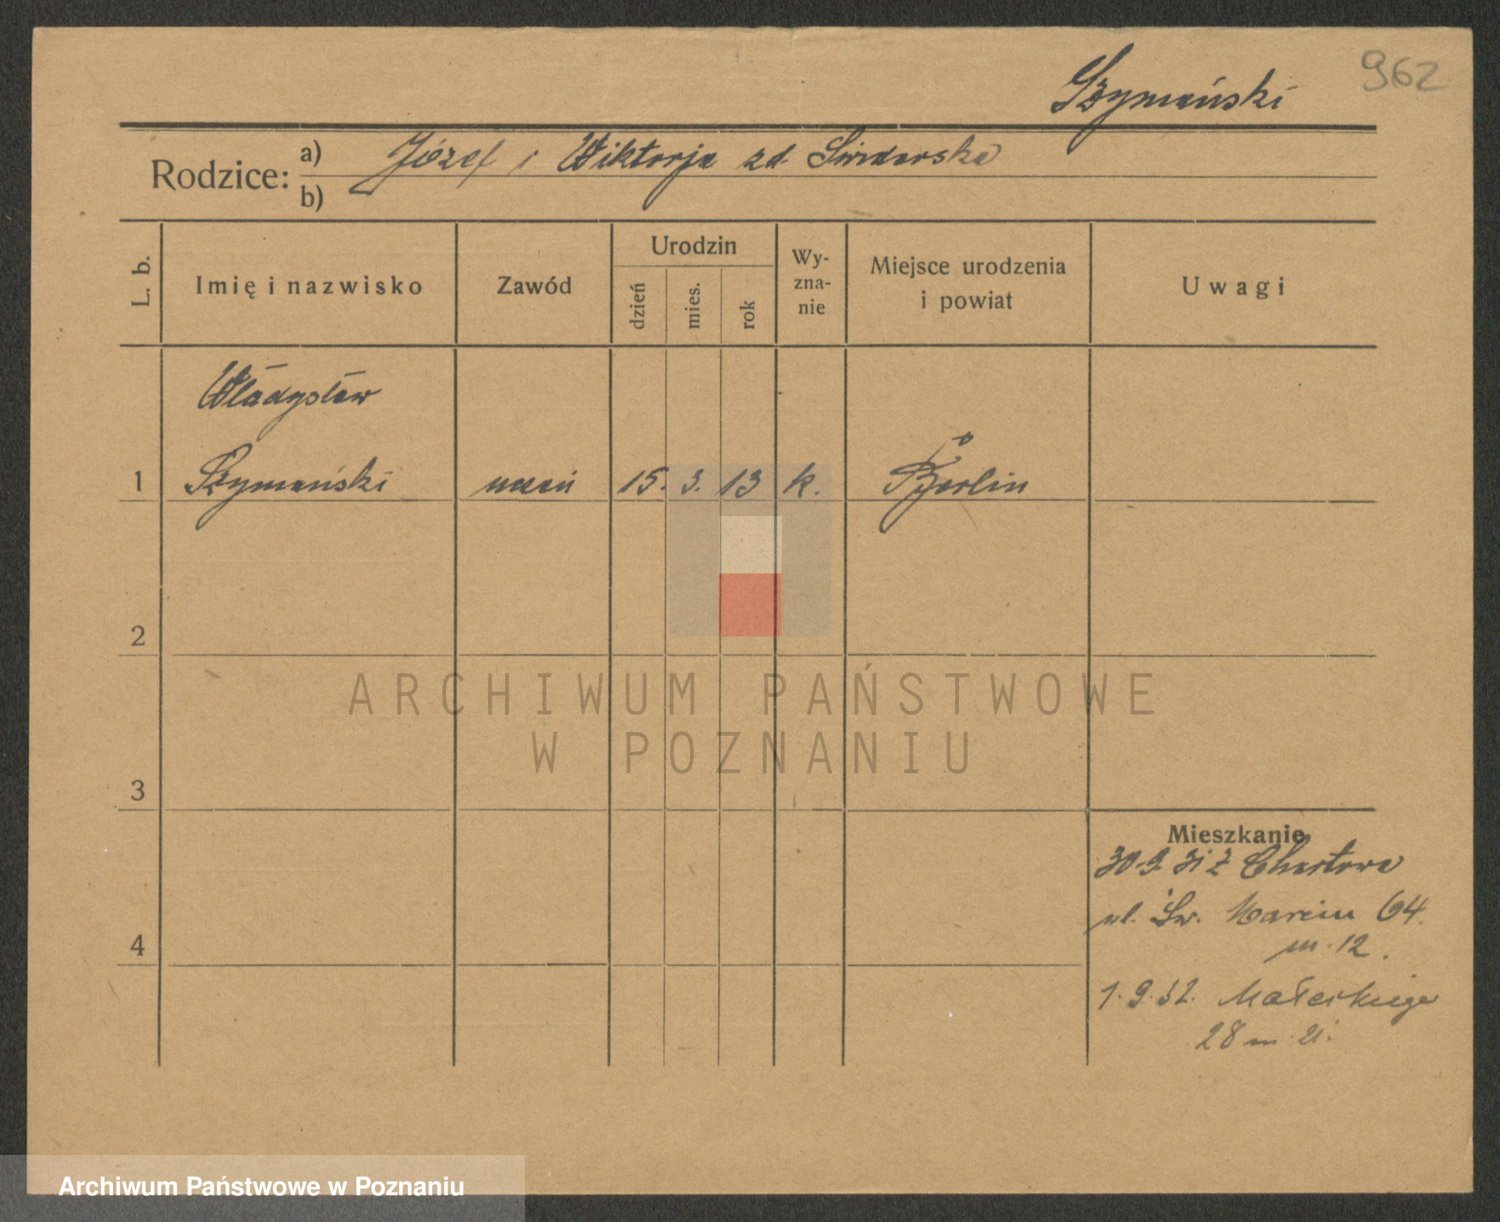 962
Szymański
Rodzice:
a) Józef i Wiktorja zd. Świderska
b)
L. b.
Imię i nazwisko
Zawód
Urodzin
dzień
mies.
rok
Wy-
zna-
nie
Miejsce urodzenia
i powiat
Uwagi
Władysław
1 Szymański uczeń 15. 3. 13 k. Berlin
2
3
4
Mieszkanie
30.9.31 z Chartowa
ul. Św. Marcin 64
m. 12.
1.9.32. Małeckiego
28 m. 21.
ARCHIWUM PAŃSTWOWE
W POZNANIU
Archiwum Państwowe w Poznaniu